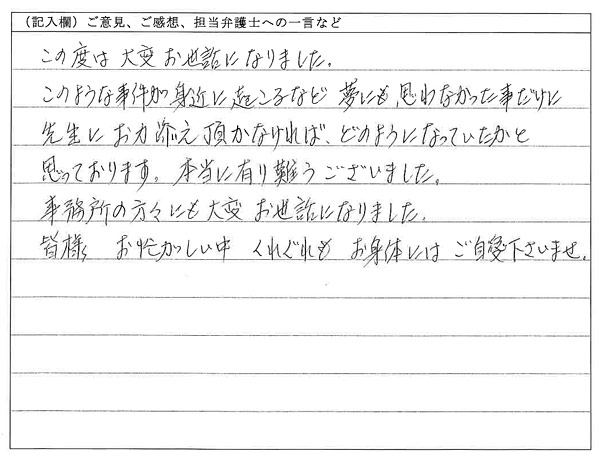 （記入欄）ご意見、ご感想、担当弁護士への一言など
この度は 大変 お世話になりました。
このような事件が 身近に 起こるなど 夢にも 思わなかった事だけに
先生に お力添え 頂かなければ、どのようになっていたかと
思っております。本当に有り難うございました。
事務所の方々にも大変 お世話になりました。
皆様 お忙がしい中 くれぐれも お身体には ご自愛下さいませ。